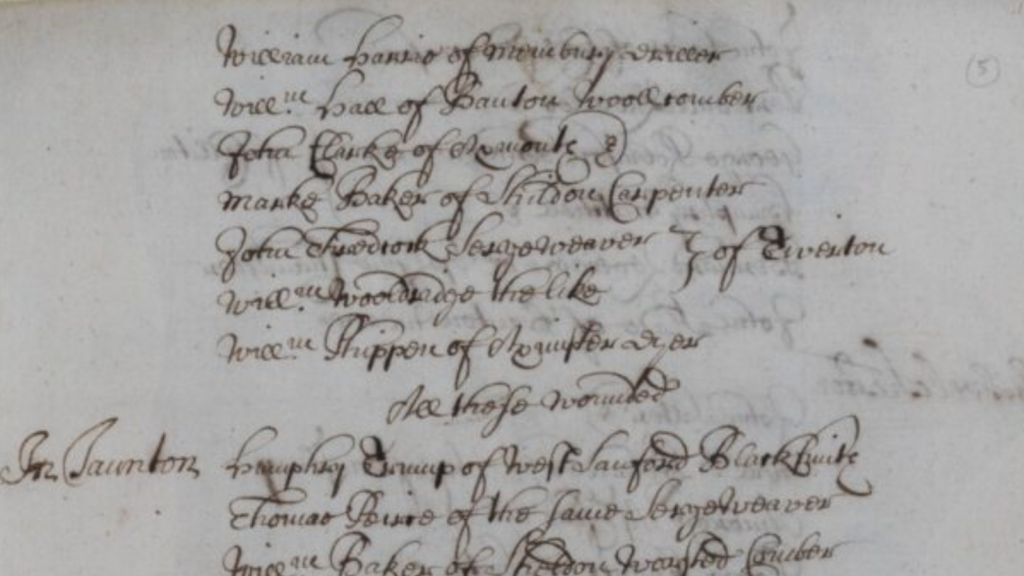 (5)
William Harris of Membury
Will.m Hall of Banton Woollcomber
John Clarke of Axmouth
Marke Baker of Shildon Carpenter
John Sergeweaver } of Tiverton
Will.m Wooldridge the like
Will.m Phippen of Axmister dyer
All these wounded
In Taunton Humphry Tramp of West Sanford Blacksmith
Thomas Peirce of the same Sergeweaver
Will.m Baker of Sheldon Worsted Comber